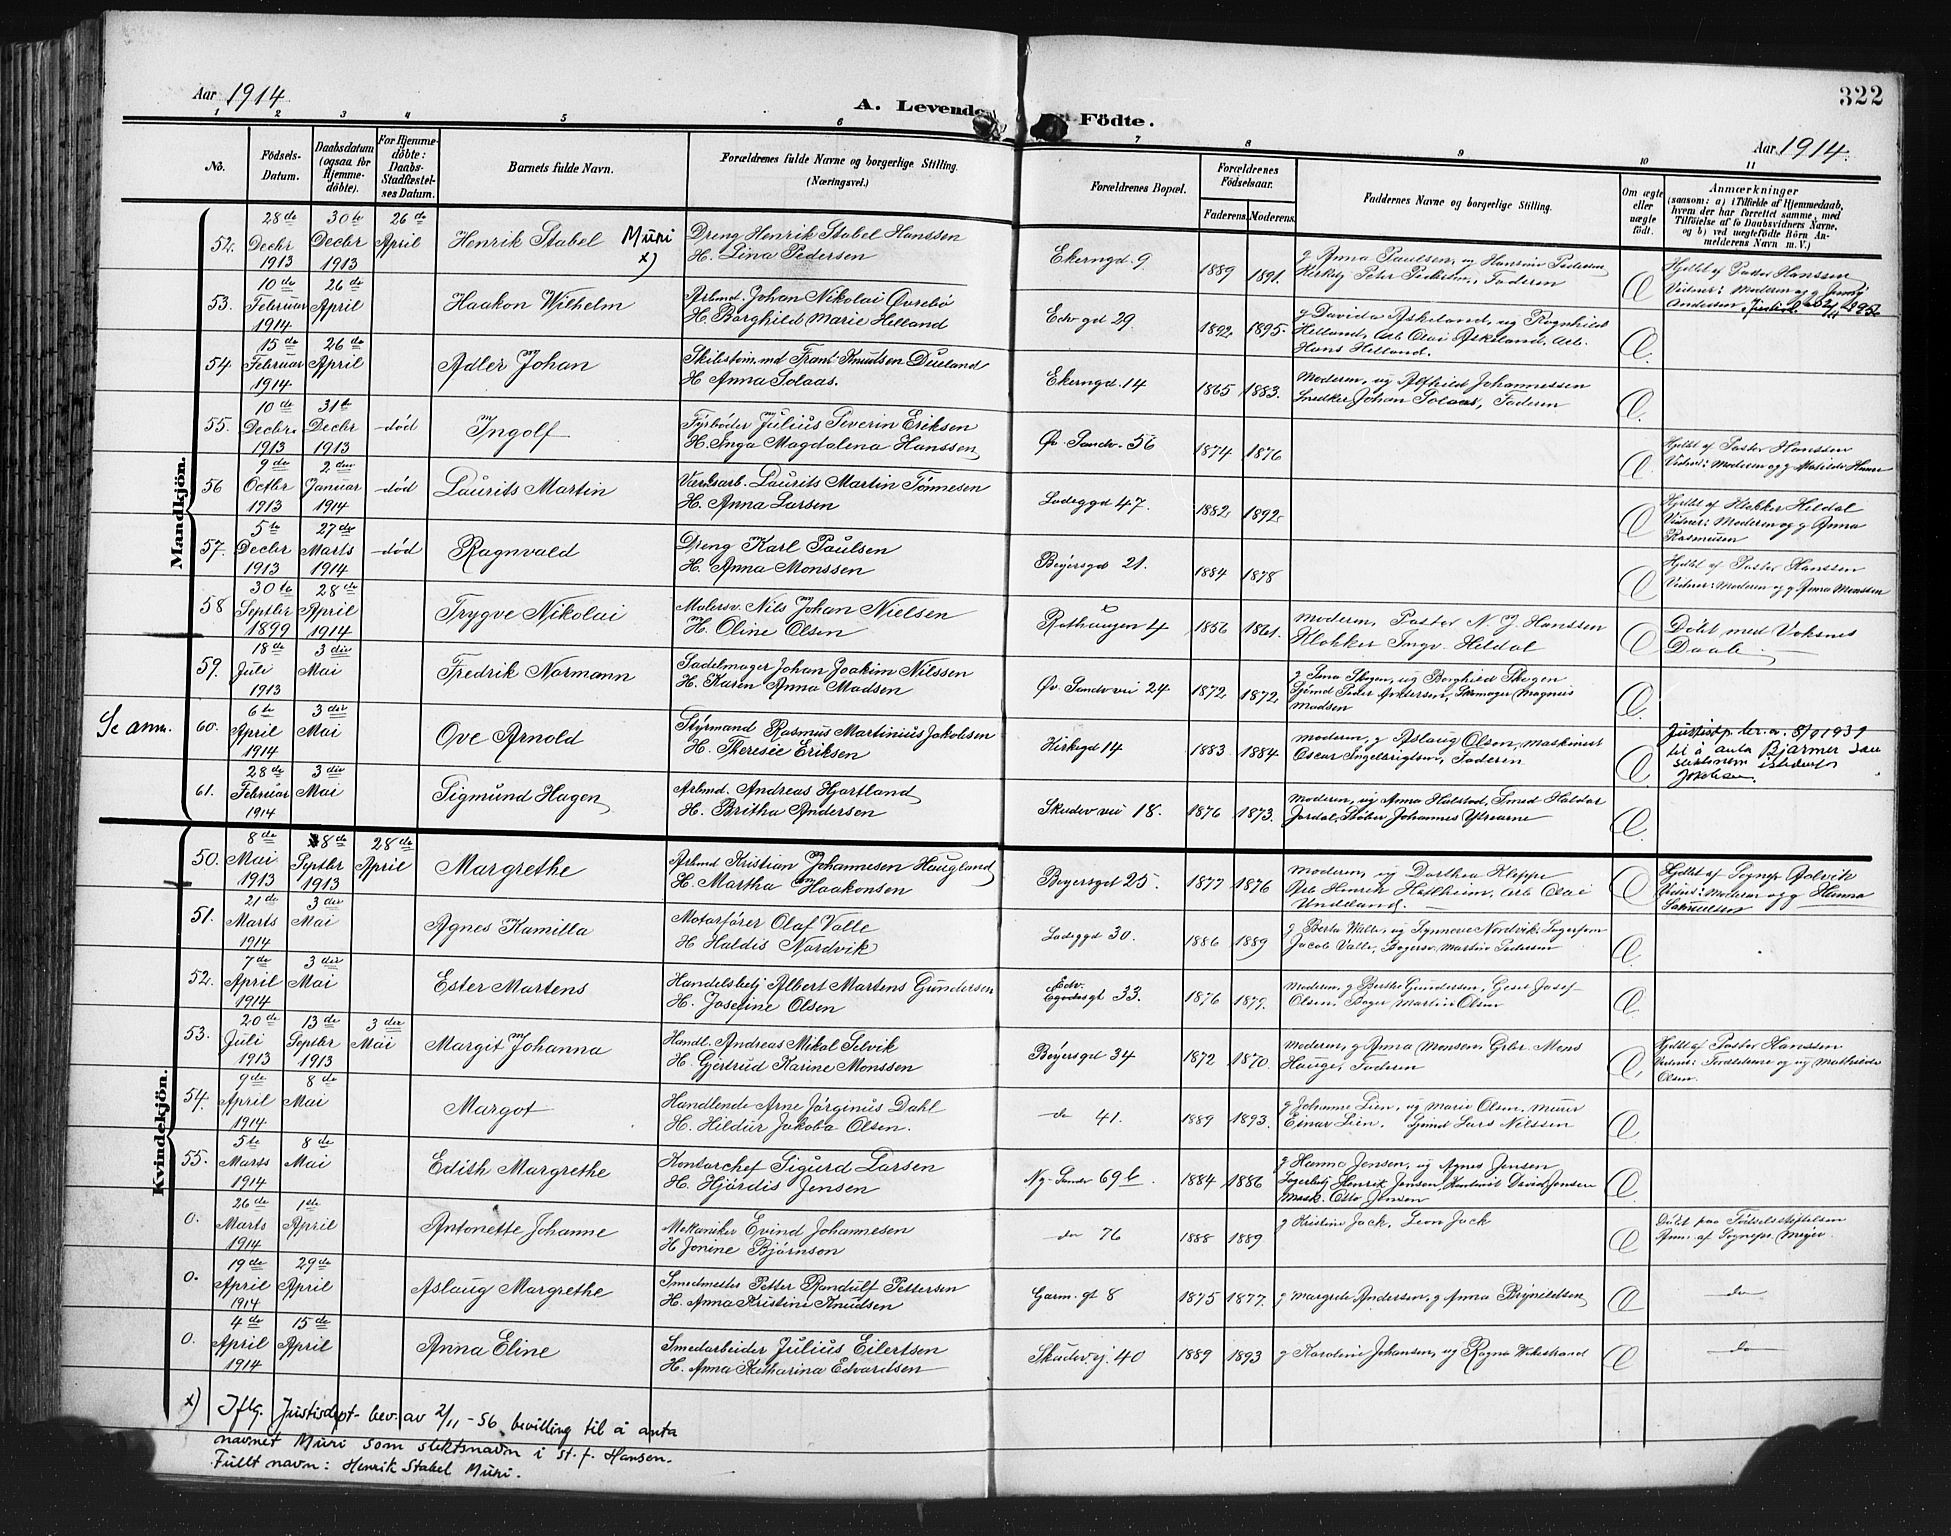 322
Aar 1914
A. Levende Födte.
Aar 1914.
1 2 3 4 5 6 7 8 9 10 11
No.
Födsels-Datum.
Daabsdatum (ogsaa for Hjemmedöbte).
For Hjemmedöbte: Daabs-Stadfæstelses Datum.
Barnets fulde Navn.
Forældrenes fulde Navne og borgerlige Stilling. (Næringsvei.)
Forældrenes Bopæl.
Forældrenes Födselsaar.
Faderens. Moderens.
Faddernes Navne og borgerlige Stilling.
Om ægte eller uægte födt.
Anmærkninger (saasom: a) i Tilfælde af Hjemmedaab, hvem der har forrettet samme, med Tilföielse af to Daabsvidners Navne, og b) ved uægtefödte Börn Anmelderens Navn m. V.)
Mandkjön.
52. 28de Decbr 1913 30te Decbr 1913 26de April Henrik Stabel Muri x) Dreng Henrik Stabel Hanssen
H. Lina Pedersen Ekerngd. 9 1889 1891. g Anna Paulsen, ug Hansine Pedersen
Kirketj Peter Pedersen, Faderen Hjdbt af Pastor Hanssen
Vidner: Moderen og g Jenny Andersen
53. 10de Februar 1914 26de April Haakon Wilhelm Arbmd. Johan Nikolai Øvrebø
H. Borghild Marie Helland Edv gd 29 1892 1895. g Davida Askeland, ug Ragnhild
Helland, Arb Olai Askeland, Arb.
Hans Helland.
54 15de Februar 1914 26de April Adler Johan Skibstømmd Frant Knudsen Dueland
H Anna Solaas. Ekerngd. 14 1865 1883. Moderen, ug Alfhild Johannessen
Snedker Johan Solaas, Faderen
55. 10de Decbr. 1913 31te Decbr 1913 -død Ingolf Fyrbøder Julius Severin Eriksen
H. Inga Magdalena Hanssen Øv. Sandv. 56 1874 1876 Hjdbt af Pastor Hanssen
Vidner: Moderen og g Matilde
56 9de Octbr 1913 2den Januar 1914 -død Laurits Martin Værftsarb. Laurits Martin Tønnesen
H. Anna Larsen Ladeggd 47. 1882, 1892, Hjdbt af Klokker Hildal
Vidner: Moderen og g Anna
Rasmusen
57. 5te Decbr 1913 27de Marts 1914 -død Ragnvald Dreng Karl Paulsen
H. Anna Monssen Beyersgd 21. 1884 1878 Hjdbt af Pastor Hanssen
Vidner: Moderen og g. Anna Monssen
58 30te Septbr 1899 28de April 1914 Trygve Nikolai Malersv. Nils Johan Nielsen
H. Oline Olsen Rothaugen 4 1856 1861. Moderen, Pastor N. J. Hanssen
Klokker Ingv. Hildal Døbt med Voksnes
Daab.
59. 18de Juli 1913 3die Mai Fredrik Normann Sadelmager Johan Joakim Nilssen
H. Karen Anna Madsen Øv. Sandv vei 24 1872 1872, g Skogen, ug Borghild Skogen
Sjømd Peder Andersen, Magnus
Madsen
Se anm. 60. 6te April 1914 3die Mai Ove Arnold Styrmand Rasmus Martinius Jakobsen
H. Theresie Eriksen Kirkegd 14 1883 1884. Moderen, g Aslaug Olsen, Maskinist
Oscar Ingebrigtsen, Faderen Justisdp. 1931
til å anta Bjarmer som
slektsnavn istedenfor
Jakobsen.
61. 28de Februar 1914 3die Mai Sigmund Hagen Arbmd. Andreas Hjortland
H. Britha Andersen Skudev vei 18. 1876 1873. Moderen, ug Anna Hulstad, Smed Haldor
Jordal, Støber Johannes
Kvindekjön.
50. 8de Mai 1913 28de Septbr 1913 28de April Margrethe Arbmd Kristian Johannesen Haugland
H. Martha Haakonsen Beyersgd 25. 1877 1876 Moderen, ug Dorthea Kleppe
Arb Henrik Hellheim, Arb Olai
Undeland. Hjdbt af Sognep Solvik
Vidner: Moderen og g Hanna
Samuelsen
51. 21de Marts 1914 3die Mai Agnes Kamilla Motorfører Olaf Valle
H Haldis Nordvik Ladeggd 30. 1886 1889 g Berta Valle, ug Synnove Nordvik,
Jacob Valle, Martin Pedersen
52. 7de April 1914 3die Mai Ester Martens Handelsbetj Albert Martens Gundersen
H. Josefine Olsen Edv. Egedesgt 33. 1876 1879. Moderen, g Berthe Gundersen, Josef
Olsen, Bager Martin Olsen
53. 20de Juli 1913 13de Septbr 1913 3die Mai Margit Johanna Handl. Andreas Mikal Selvik
H. Gjertrud Karine Monssen Beyersgd 34 1872 1870. Moderen, g Anna Monsen, Grbr. Mons
Hauge, Faderen Hjdbt af Pastor Hanssen
Vidner: Forældrene og ug Mathilde
Olsen.
54. 9de April 1914 8de Mai Margot Handlende Arne Jørginus Dahl
H. Hildur Jakoba Olsen. do 41. 1889 1893. g Johanne Lien, ug Marie Olsen. Murer
Einar Lien, Sjømd Lars Nilssen
55. 5te Marts 1914 8de Mai Edith Margrethe Kontorchef Sigurd Larsen
H. Hjørdis Jensen Ny-Sandv 69 b. 1884 1886 g Hanna Jensen, ug Agnes Jensen
Lagerbetj Henrik Jensen, Kontorist David Jensen
Mask. Otto Jensen
0. 26de Marts 1914 1ste April Antonette Johanne Mekaniker Evind Johannesen
H Jonine Bjørnson do 76 1888 1889 g Kristine Jack, Leon Jack Døbt paa Fødselsstiftelsen
Anm. af Sognepr. Meyer.
0. 19de April 1914 29de April Aslaug Margrethe Smedmester Petter Randulf Pettersen
H. Anna Kristine Knudsen Garm. gt 8 1875 1877. g Margrete Andersen, g Anna Brynildsen do
0. 4de April 1914 15de April Anna Eline Smedarbeider Julius Eilertsen
H. Anna Katharina Edvardsen Skudevej. 40 1889 1893 g Karoline Johansen, ug Ragna Wikestrand do
x) Iflg. Justisdept- bev. av 2/11-56 bevilling til å anta
navnet Muri som slektsnavn i st. f. Hansen.
Fullt navn: Henrik Stabel Muri.